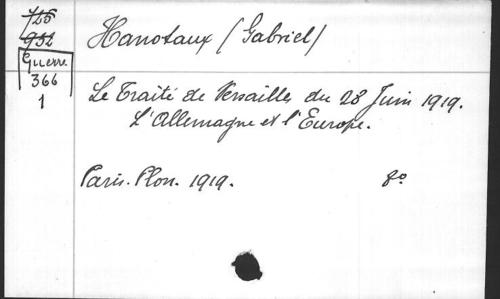 725
932
Guerre
366
1
Hanotaux (Gabriel)
Le Traité de Versailles du 28 Juin 1919.
L'Allemagne et l'Europe.
Paris. Plon. 1919. 8º